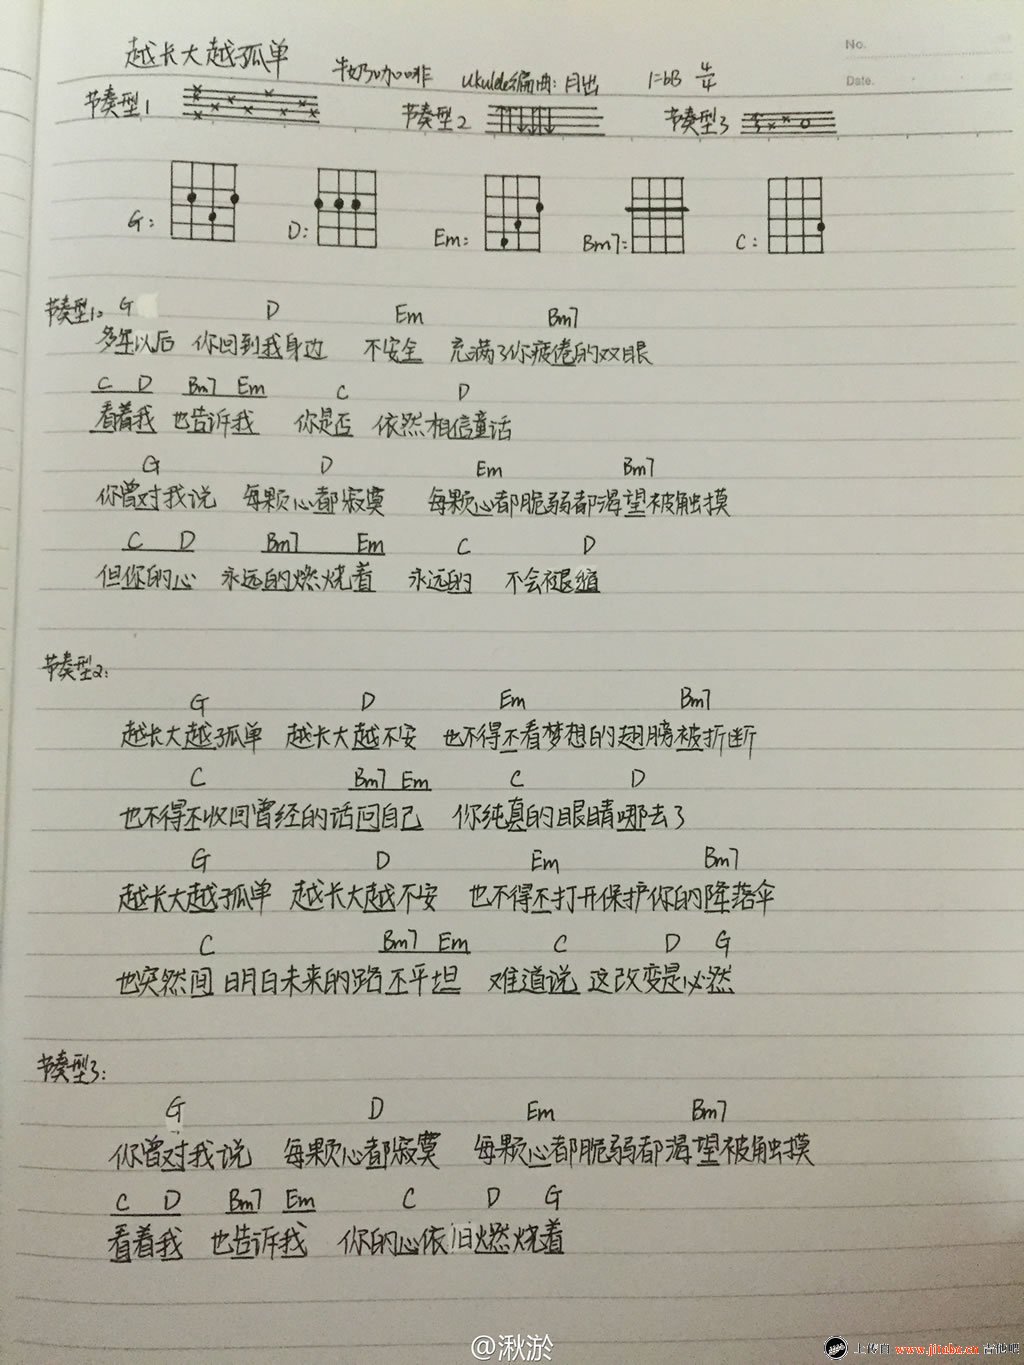 No.
越长大越孤单 牛奶咖啡 ukulele编曲:月出 1=bB 4/4
Date.
节奏型1 节奏型2 节奏型3
G: D: Em: Bm7: C:
节奏型1: G D Em Bm7
多年以后 你回到我身边 不安全 充满了你疲倦的双眼
C D Bm7 Em C D
看着我 也告诉我 你是否 依然相信童话
G D Em Bm7
你曾对我说 每颗心都寂寞 每颗心都脆弱都渴望被触摸
C D Bm7 Em C D
但你的心 永远的燃烧着 永远的 不会被退缩
节奏型2:
G D Em Bm7
越长大越孤单 越长大越不安 也不得不看梦想的翅膀被折断
C Bm7 Em C D
也不得不收回曾经的话问自己 你纯真的眼睛哪去了
G D Em Bm7
越长大越孤单 越长大越不安 也不得不打开保护你的降落伞
C Bm7 Em C D G
也突然间 明白未来的路不平坦 难道说 这改变是必然
节奏型3:
G D Em Bm7
你曾对我说 每颗心都寂寞 每颗心都脆弱都渴望被触摸
C D Bm7 Em C D G
看着我 也告诉我 你的心依旧燃烧着
@湫淤
上传自 www.jitaba.cn 吉他吧